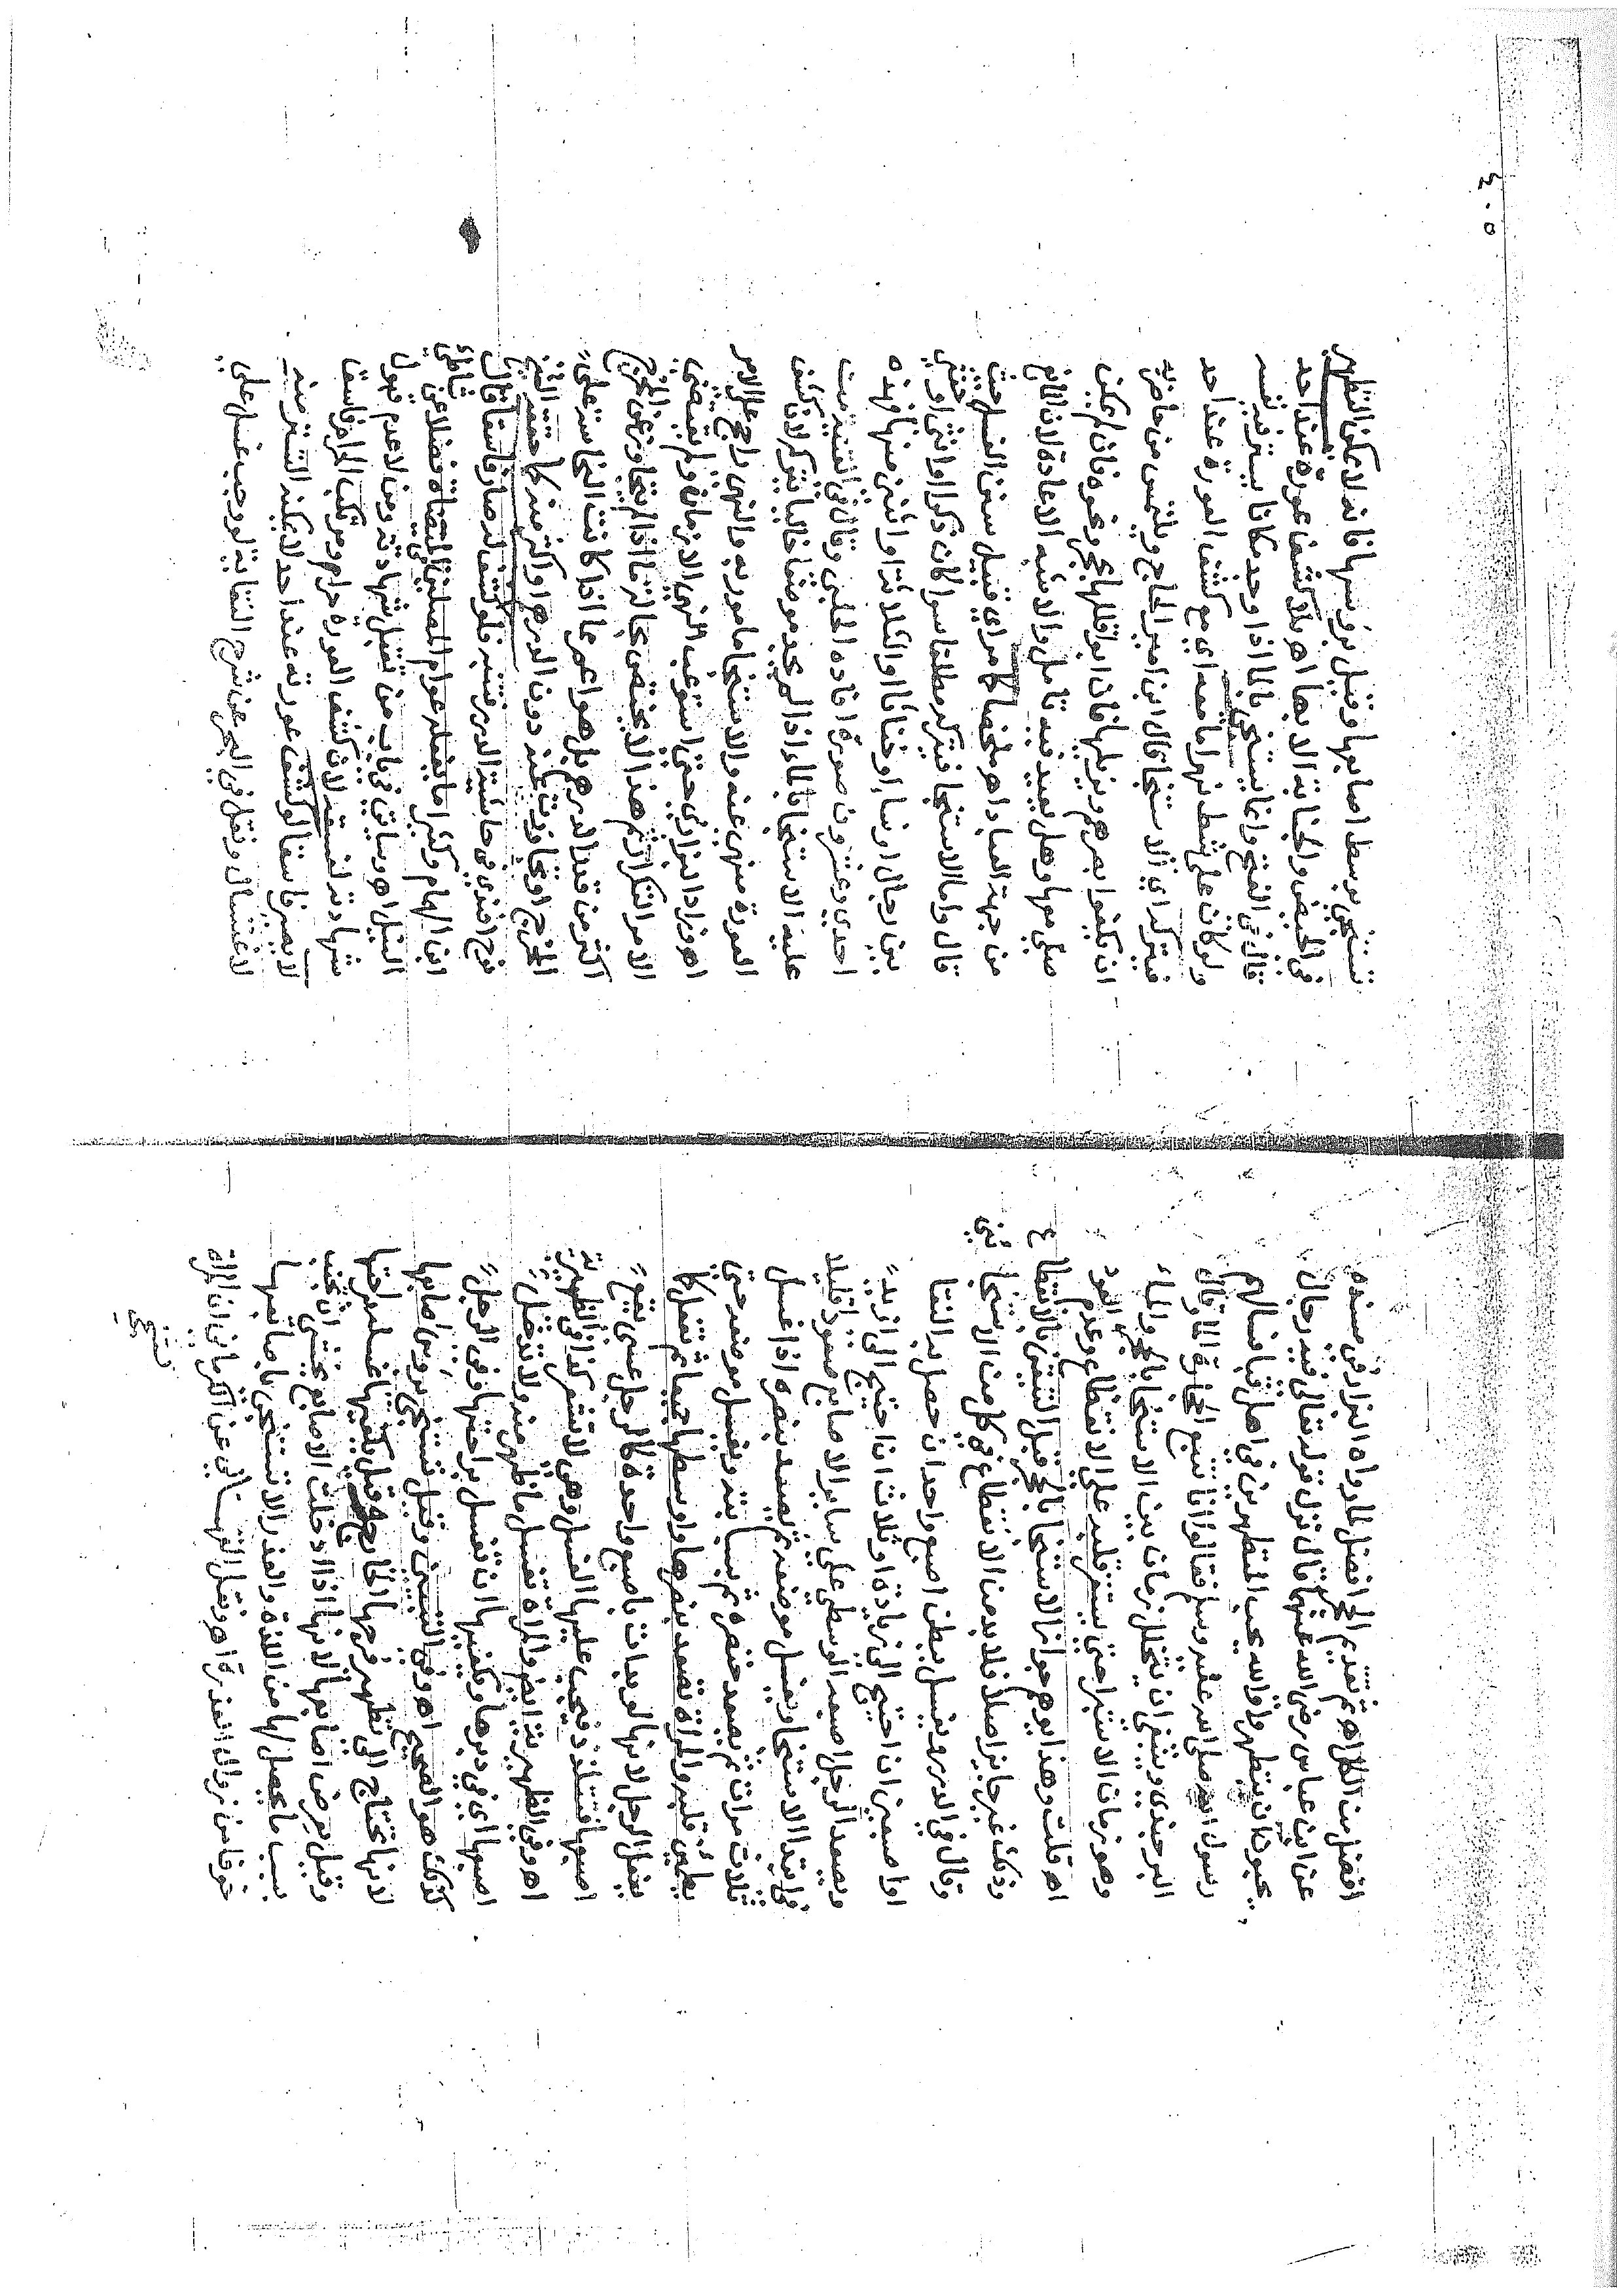 افضل من الكل اهـ ثم تقديم الحجر افضل لما رواه البزار في مسنده
عن ابن عباس رضي الله عنهما قال نزل قوله تعالى فيه رجال
يحبون ان يتطهروا والله يحب المتطهرين في اهل قبا فسالهم
رسول الله صلى الله عليه وسلم فقالوا انا نتبع الحجارة الماء وقال
البرجندي وينبغي ان يتخلل زمان بين الاستنجا بالحجر والماء
وهو زمان الاستبرا حتى يستقر قلبه على الانقطاع وعدم العود
اهـ قلت وهذا يوهم جواز الاستنجا بالحجر قبل التيقن بالانقطاع
وذلك غير جايز اصلا فلا بد من الانقطاع في كل من الاستنجايين
وقال في الدرر ويغسل ببطن اصبع واحد ان حصل به النقا
او اصبعين ان احتيج الى زيادة او ثلاث ان احتيج الى ازيد
ويصعد الرجل اصبعه الوسطى على ساير الاصابع صعودا قليلا
في ابتدا الاستنجا ويغسل موضعه ثم يصعد بنصره اذا غسل
ثلاث مرات ثم يصعد خنصره ثم سبابته ويغسل موضعه حتى
يطمئن قلبه والمراة تصعد بنصرها واوسطها جميعا ثم تفعل كما
يفعل الرجل لانها لو بدات باصبع واحدة كالرجل عسى يقع
اصبعها فتتلذذ فيجب عليها الغسل وهي لا تشعر كذا في الظهيرية
اهـ وفي الظهيرية ايضا والمراة تغسل ما ظهر منه ولا تدخل
اصبعها اي في دبرها ويكفيها ان تغسل براحتها وفي الرجل
كذلك هو الصحيح اهـ وفي التبيين وقيل تستنجي بروس اصابعها
لانها تحتاج الى تطهير فرجها الخارج وقيل يكفيها غسله براحتها
وقيل بعرض اصابعها لانها اذا ادخلت الاصابع يخشى ان يجب
بسبب ما يحصل لها من اللذة والعذرا لا تستنجي باصابعها
خوفا من زوال العذرة اهـ ونقل القهستاني عن الكرماني ان المراة
تستنجي
تستنجي بوسط اصابعها وقيل بروسها فانه لا يمكن التطهير
في الحيض والجنابة الا بها اهـ بلا كشف عورة عند احد
قال في الفتح وانما يستنجي بالماء اذا وجد مكانا يستر فيه نفسه
ولو كان على شط نهر اما معه اي مع كشف العورة عند احد
فيتركه اي الاستنجا قال ابن امير الحاج ويلتمس من حاضريه
ان يكفوا بصرهم ويزيلها فان ابوا قللها بحجر ونحوه فان لم يمكن
صلى معها وهل يعيد فيه تامل والاشبه الاعادة لان المانع
من جهة العباد اهـ ملخصا كما مر اي قبيل سنن الغسل حيث
قال واما الاستنجا فيتركه مطلقا سوا كان ذكرا او انثى او خنثى
بين رجال او نساء او خناثا او الكلا ثة او اثنين منها فهذه
احدى وعشرون صورة افاده الحلبي وقال في القنية من
عليه الاستنجا بالماء اذا لم يجد موضعا خاليا يتركه لان كشف
العورة منهي عنه والاستنجا مامور به والنهي راجح على الامر
اهـ وزاد البزازي حتى استوعب النهي الازمان ولم يقتض
الامر التكرار ثم هذا لا يختص بما اذا لم يتجاوز عن المخرج
اكثر من قدر الدرهم بل هو اعم مما اذا كانت النجاسة على
المخرج او تجاوزت عنه دون الدرهم او اكثر منه كما حققه الشيخ
نوح افندي في حاشية الدرر فتنبه فلو كشف له صار فاسقا قال
ابن الهمام وكثيرا ما يفعله عوام المصلين في الميضاة فضلا عن شاطئ
النيل اهـ وسياتي في باب من تقبل شهادته ومن لا عدم قبول
شهادته لفسقه لان كشف العورة حرام ومرتكب الحرام فاسق
لا يصير فاسقا لو كشف عورته عند احد لا يمكنه التستر منه
لاغتسال ونقل في البحر عن شرح النقاية لو وجب غسل على